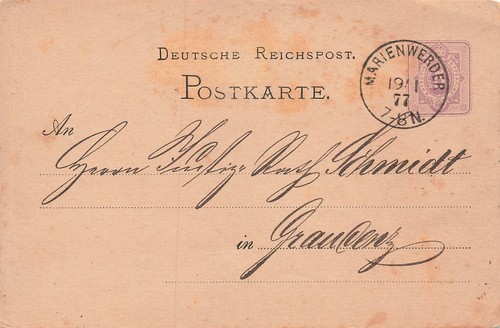 DEUTSCHE REICHSPOST.
POSTKARTE.
MARIENWERDER
19/1
77
7-8N.
An
Herrn Justiz-Rath Schmidt
in Graudenz